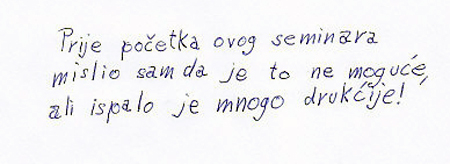 Prije početka ovog seminara
mislio sam da je to ne moguće,
ali ispalo je mnogo drukčije!